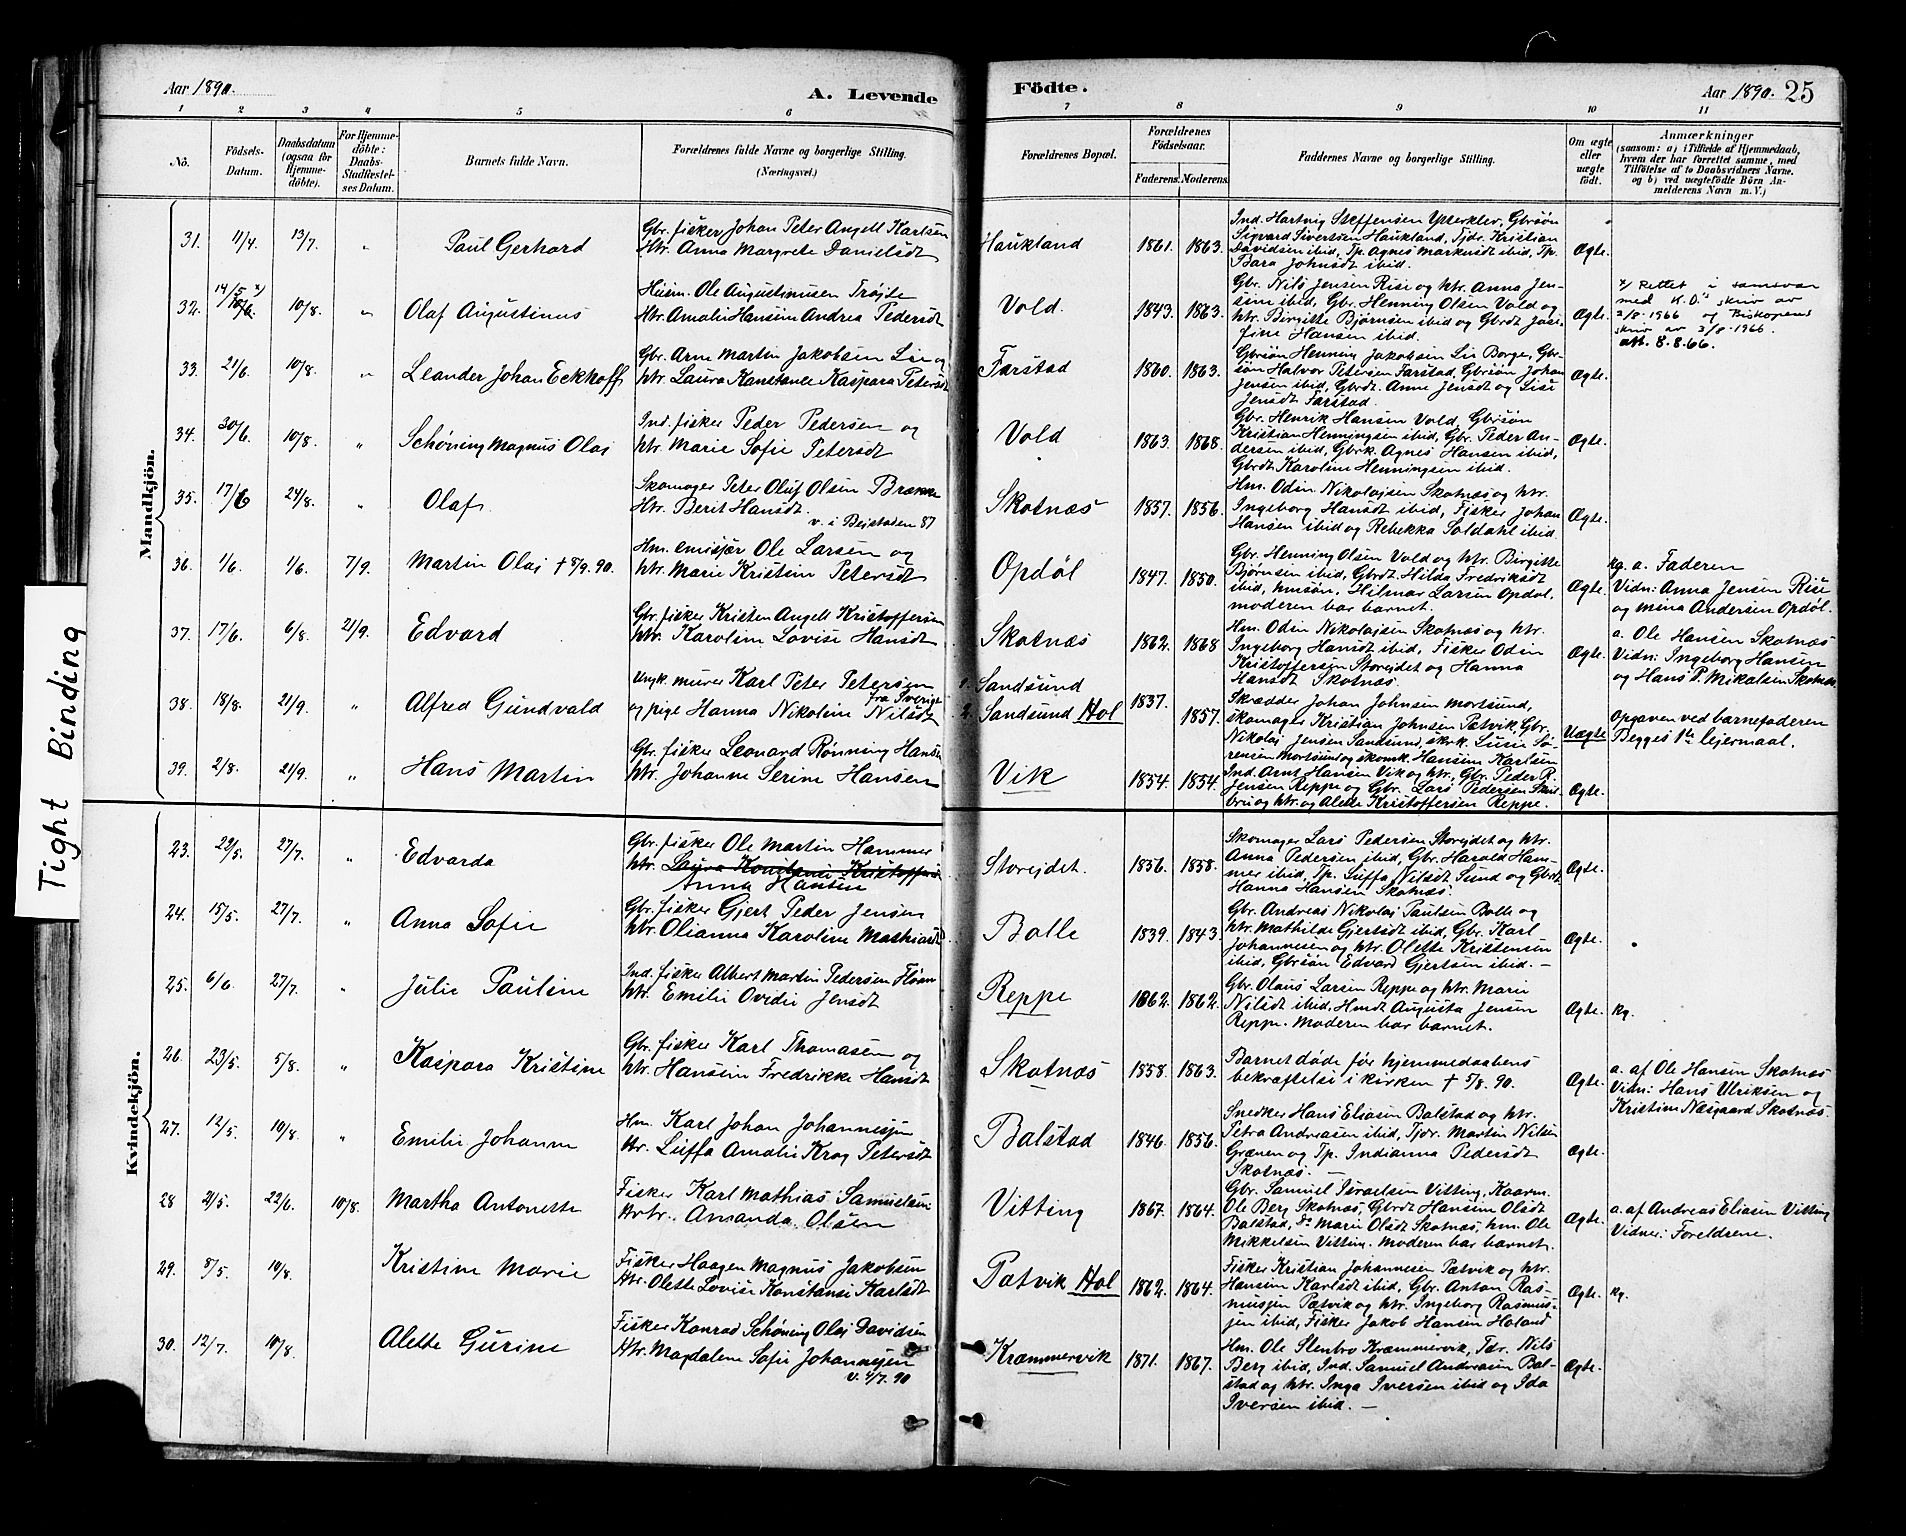 Aar 1890.
A. Levende
Födte.
Aar 1890. 25
1 2 3 4 5 6 7 8 9 10 11
No.
Födsels-
Datum.
Daabsdatum
(ogsaa for
Hjemme-
döbte).
For Hjemme-
döbte:
Daabs-
Stadfæstel-
ses Datum.
Barnets fulde Navn.
Forældrenes fulde Navne og borgerlige Stilling.
(Næringsvei.)
Forældrenes Bopæl.
Forældrenes
Födselsaar.
Faderens. Moderens.
Faddernes Navne og borgerlige Stilling.
Om ægte
eller
uægte
födt.
Anmærkninger
(saasom: a) i Tilfælde af Hjemmedaab,
hvem der har forrettet samme, med
Tilföielse af to Daabsvidners Navne.
og b) ved uægtefödte Börn An-
melderens Navn m. V.)
Tight Binding
Mandkjön.
31. 11/4. 13/7. " Paul Gerhard
Gbr. fisker Johan Peter Angell Karlsen
Htr. Anna Margrete Danielsdt
Haukland 1861. 1863.
Ind. Hartvig Steffensen Ytterklev, Gbrsön
Sigvard Sivertsen Haukland, Tjdr. Kristian
Davidsen ibid, Tp. Agnes Markusdt ibid, Tp.
Bara Johnsdt ibid.
Ægte.
32. 14/5 x) 10/6. 10/8. " Olaf Augustinus
Husm. Ole Augustinusen Trøjte
Htr. Amalie Hansine Andrea Pedersdt
Vold. 1843. 1863.
Gbr. Nils Jensen Rise og htr. Anna Jen-
sen ibid, Gbr. Henning Olsen Vold og
htr. Birgitte Bjørnsen ibid og Gbrdt Jose-
fine Hansen ibid.
Ægte.
x/ Rettet i samsvar
med K.D.'s skriv av
2/8-1966 og Biskopens
skriv av 3/8-1966.
att. 8.8.66.
33. 21/6. 10/8. " Leander Johan Eckhoff
Gbr. Arne Martin Jakobsen Lie og
htr. Laura Konstance Kaspara Petersdt
Farstad 1860. 1863.
Gbrsön Henning Jakobsen Lie Borge, Gbr-
sön Halvor Petersen Farstad, Gbrsön Johan
Jensen ibid, Gbrdt. Anne Jensdt og Lise
Jensdt Farstad.
Ægte.
34. 30/6. 10/8. " Schøning Magnus Olaj
Ind. fisker Peder Pedersen og
htr. Marie Sofie Petersdt
Vold 1863. 1868.
Gbr. Henrik Hansen Vold, Gbrsön
Kristian Henningsen ibid, Gbr. Peder An-
dersen ibid, Gbrk. Agnes Hansen ibid,
Gbrdt Karoline Henningsen ibid.
Ægte.
35. 17/6 24/8. " Olaf.
Skomager Peter Oluf Olsen Brække
Htr. Berit Hansdt.
v. i Beistaden 87
Skotnæs 1857. 1856.
Hm. Odin Nikolajsen Skotnæs og htr.
Ingeborg Hansdt ibid, Fisker Johan
Hansen ibid og Rebekka Soldahl ibid.
Ægte.
36. 1/6. 1/6. 7/9. Martin Olaj † 8/9. 90.
Hm. emisjær Ole Larsen og
htr. Marie Kristine Petersdt
Opdøl 1847. 1850.
Gbr. Henning Olsen Vold og htr. Birgitte
Bjørnsen ibid, Gbrdt. Hilda Fredriksdt
ibid, hmsön. Hilmar Larsen Opdøl,
moderen bar barnet.
Ægte.
kg. a. Faderen
Vidn: Anna Jensen Rise
og mena Andersen Opdøl.
37. 17/6. 6/8. 21/9. Edvard
Gbr. fisker Kristen Angell Kristoffersen
htr. Karoline Lovise Hansdt
Skotnæs 1862. 1868
Hm. Odin Nikolajsen Skotnæs og htr.
Ingeborg Hansdt ibid, Fisker Odin
Kristoffersen Storejdet og Hanna
Hansdt Skotnæs.
Ægte.
a. Ole Hansen Skotnæs
Vidn: Ingeborg Hansen
og Hans P. Mikalsen Skotnæs
38. 18/8. 21/9. " Alfred Gundvald
Ungk. murer Karl Peter Petersen
fra Sverige
og pige Hanna Nikoline Nilsdt
1. Sandsund
2. Sandsund Hol 1837. 1857.
Skrædder Johan Johnsen Mortsund,
skomager Kristian Johnsen Pætvik, Gbr.
Nikolaj Jensen Sandsund, skrk. Lusie Sø-
rensen Mortsund og skomk. Hansine Karlsen
Uægte
Opgaven ved barnefaderen
Begges 1ste lejermaal.
39. 2/8. 21/9. " Hans Martin
Gbr. fisker Leonard Rønning Hansen
htr. Johanne Serine Hansen
Vik 1854. 1854.
Ind. Arnt Hansen Vik og htr, Gbr. Peder R.
Jensen Reppe og Gbr. Lars Pedersen Sten-
bru og htr. og Alette Kristoffersen Reppe.
Ægte.
Kvindekjön.
23. 22/5. 27/7. " Edvarda
Gbr. fisker Ole Martin Hammer
htr. Laura Konstance Kristoffersdt
Anna Hansen
Storejdet. 1856. 1858.
Skomager Lars Pedersen Storejdet og htr.
Anna Pedersen ibid, Gbr. Harald Ham-
mer ibid, Tp. Luffa Nilsdt Sund og Gbrdt
Hanna Hansen Skotnæs.
Ægte.
24. 15/5. 27/7. " Anna Sofie
Gbr. fisker Gjert Peder Jensen
htr. Olianna Karoline Mathiasdt.
Bolle 1839. 1843.
Gbr. Andreas Nikolaj Paulsen Bolle og
htr. Mathilde Gjertsdt ibid, Gbr. Karl
Johannesen og htr. Olette Kristensen
ibid, Gbrsön Edvard Gjertsen ibid. —
Ægte.
25. 6/6 27/7. " Julie Pauline
Ind. fisker Albert Martin Pedersen Fløan
htr. Emilie Ovidie Jensdt
Reppe 1862. 1862.
Gbr. Olaus Larsen Reppe og htr. Marie
Nilsdt ibid, Hmdt Augusta Jensen
Reppe. Moderen bar barnet.
Ægte. kg.
26. 23/5. 5/8. " Kaspara Kristine
Gbr. fisker Karl Thomasen og
htr. Hansine Fredrikke Hansdt
Skotnæs 1858. 1863.
Barnet døde før hjemmedaabens
bekræftelse i kirken † 5/8. 90.
Ægte.
a. af Ole Hansen Skotnæs
Vidn: Hans Ulriksen og
Kristine Næsgaard Skotnæs.
27. 12/5. 10/8. " Emilie Johanne
Hm. Karl Johan Johannesjen
Htr. Luffa Amalie Krog Petersdt
Balstad 1846. 1856.
Snedker Hans Eliasen Balstad og htr.
Petra Andreasen ibid, Tjdr. Martin Nilsen
Grænen og Tp. Indianna Pedersdt
Skotnæs. —
Ægte.
28 21/5. 22/6. 10/8. Martha Antonette
Fisker Karl Mathias Samuelsen
Htr. Amanda Olsen
Vitting 1867. 1864.
Gbr. Samuel Israelsen Vitting, Kaarm.
Ole Berg Skotnæs, Gbrdt Hansine Olsdt
Balstad, Do Marie Olsdt Skotnæs, hm. Ole
Mikkelsen Vitting. Moderen bar barnet.
Ægte.
a. af Andreas Eliasen Vitting
Vidner: Foreldrene.
29. 8/5. 10/8. Kristine Marie
Fisker Haagen Magnus Jakobsen
Htr. Olette Lovise Konstanse Karlsdt
Pætvik Hol 1862. 1864.
Fisker Kristian Johannesen Pætvik og htr.
Hansine Karlsdt ibid, Gbr. Anton Ras-
musjen Pætvik og htr. Ingeborg Rasmus-
jen ibid, Fisker Jakob Hansen Holand
Ægte. kg.
30. 12/7. 10/8. Alette Gurine
Fisker Konrad Schøning Olaj Davidsen
Htr. Magdalene Sofie Johannesjen
v. 4/7. 90
Kræmmervik 1871. 1867.
Hm. Ole Stenbro Kræmmervik, Tdr. Nils
Berg ibid, Ind. Samuel Andreasen Bal-
stad og htr. Inga Iversen ibid og Ida
Iversen ibid. —
Ægte.